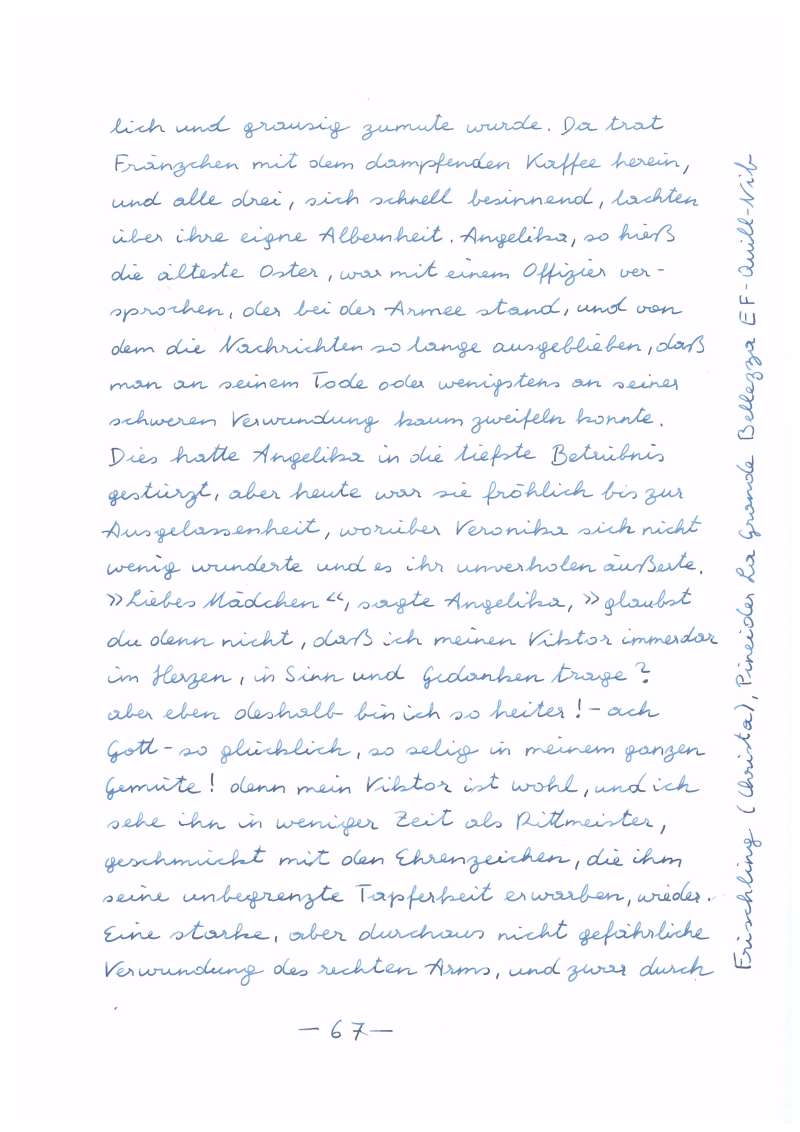 lich und grausig zumute wurde. Da trat
Fränzchen mit dem dampfenden Kaffee herein,
und alle drei, sich schnell besinnend, lachten
über ihre eigne Albernheit. Angelika, so hieß
die älteste Oster, war mit einem Offizier ver-
sprochen, der bei der Armee stand, und von
dem die Nachrichten so lange ausgeblieben, daß
man an seinem Tode oder wenigstens an seiner
schweren Verwundung kaum zweifeln konnte.
Dies hatte Angelika in die tiefste Betrübnis
gestürzt, aber heute war sie fröhlich bis zur
Ausgelassenheit, worüber Veronika sich nicht
wenig wunderte und es ihr unverholen äußerte.
»Liebes Mädchen“, sagte Angelika, »glaubst
du denn nicht, daß ich meinen Viktor immerdar
im Herzen, in Sinn und Gedanken trage?
aber eben deshalb bin ich so heiter! – ach
Gott – so glücklich, so selig in meinem ganzen
Gemüte! denn mein Viktor ist wohl, und ich
sehe ihn in weniger Zeit als Rittmeister,
geschmückt mit den Ehrenzeichen, die ihm
seine unbegrenzte Tapferkeit erwarben, wieder.
Eine starke, aber durchaus nicht gefährliche
Verwundung des rechten Arms, und zwar durch
— 67 —
Frischling (Christa), Pineider La Grande Bellezza EF-Quill-Nib